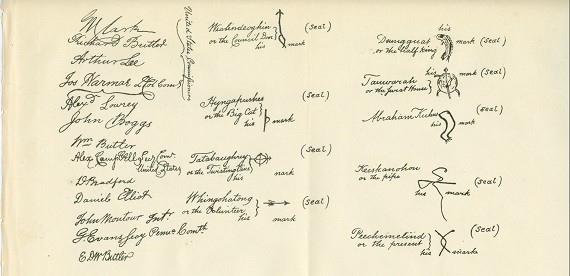 G Clark
Richard Butler
Arthur Lee
Jos Harmar Lt Col Com
Alexd Lowrey
John Boggs
Wm Butler
Alex Campbell Secy Com.
United States
D Bradford
Daniel Elliot
John Montour Intr
G. Evans Secy Penna Comth
E D W Butler
United States Commissioners
Wialindeoghin
or the Council Door
his
mark
(seal)
Hyngapushes
or the Big Cat
his
mark
(seal)
Tatabaughsey
or the Twisting Vine
his
mark
(seal)
Whingohatong
or the Volunteer
his
mark
(seal)
his
Daunghquat
or the Half King
mark
(seal)
his
Tauwarah
or the Sweet House
mark
(seal)
Abraham Kuhn
his
mark
(seal)
Keeskanohou
or the pipe
his
mark
(seal)
Peechemelind
or the present
his
mark
(seal)